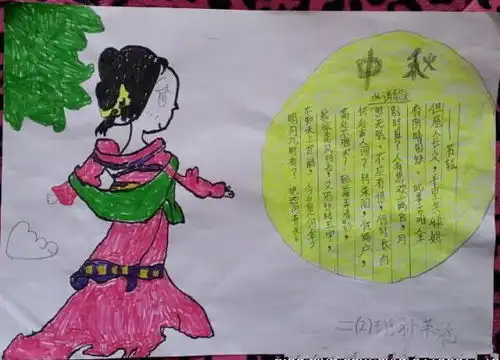 中秋
水调歌头
明月几时有?把酒问青天。
不知天上宫阙,今夕是何年
我欲乘风归去,又恐琼楼玉宇,
高处不胜寒!起舞弄清影,
何似在人间?转朱阁,低绮户,
照无眠。不应有恨,何事长向
别时圆?人有悲欢离合,月
有阴晴圆缺,此事古难全
但愿人长久,千里共婵娟
——苏轼
二(2)班